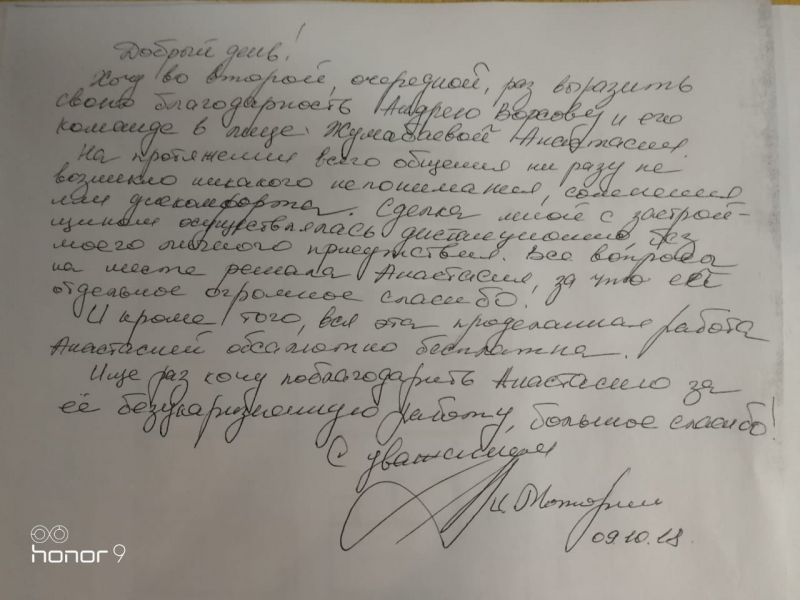 Добрый день!
Хочу во второй, очередной, раз выразить
свою благодарность Андрею и его
команде в лице Жумабаевой Анастасии.
На протяжении всего общения ни разу не
возникло никакого непонимания, сомнения
или дискомфорта. Сделка мной с застрой-
щиком осуществлялась дистанционно, без
моего личного присутствия. Все вопросы
на месте решала Анастасия, за что ей
отдельное огромное спасибо.
И кроме того, вся эта проделанная работа
Анастасией абсолютно бесплатна.
Ище раз хочу поблагодарить Анастасию за
её безукоризненную работу, большое спасибо!
С уважением
09.10.18.
honor 9